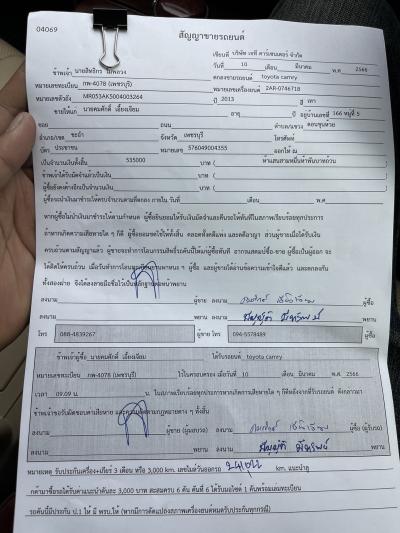 04069
สัญญาขายรถยนต์
เขียนที่ บริษัท เจที คาร์เซนเตอร์ จำกัด
วันที่ 10 เดือน มีนาคม พ.ศ 2566
ข้าพเจ้า นายสิทธิกร
ตกลงขายรถยนต์ toyota camry
หมายเลขทะเบียน กพ-4078 (เพชรบุรี) หมายเลขเครื่องยนต์ 2AR-0746718
หมายเลขตัวถัง MR053AK5004003264 ปี 2013 สี เทา
ขายให้แก่ นายคมศักดิ์ เอี้ยงเจียม อายุ ปี อยู่บ้านเลขที่ 166 หมู่ที่ 5
ถนน ตำบล/แขวง ดอนขุนห้วย
อำเภอ/เขต ชะอำ จังหวัด เพชรบุรี โทรศัพท์
บัตร ประชาชน หมายเลข 576049004355 ออกให้ ณ
เป็นจำนวนเงินทั้งสิ้น 535000 บาท ( ห้าแสนสามหมื่นห้าพันบาทถ้วน
ข้าพเจ้าได้รับมัดจำแล้วเป็นเงิน บาท (
ผู้ซื้อยังคงค้างอีกเป็นจำนวนเงิน บาท (
ผู้ซื้อจะนำเงินมาชำระให้ครบจำนวนตามที่ตกลง ภายใน วันที่ เดือน พ.ศ.
หากผู้ซื้อไม่นำเงินมาชำระให้ตามกำหนด ผู้ซื้อยินยอมให้ริบเงินมัดจำและคืนรถให้ทันทีในสภาพเรียบร้อยทุกประการ
ถ้าหากเกิดความเสียหายใด ๆ ก็ดี ผู้ซื้อยอมชดใช้ให้ทั้งสิ้น ตลอดทั้งคดีแพ่ง และคดีอาญา ส่วนผู้ขายเมื่อได้รับเงิน
ครบถ้วนตามสัญญาแล้ว ผู้ขายจะทำการโอนกรรมสิทธิ์รถคันนี้ให้แก่ผู้ซื้อทันที
ได้คิดให้ครบถ้วน เมื่อวันทำการโอน ผู้ซื้อ และผู้ขายได้อ่านข้อความเข้าใจดีแล้ว และตกลงกัน
ทั้งสองฝ่าย จึงได้ลงลายมือชื่อไว้เป็นหลักฐานต่อหน้าพยาน
ลงนาม ผู้ขาย ลงนาม ผู้ซื้อ
ลงนาม พยาน ลงนาม พยาน
โทร 088-4839267 ผู้ขาย โทร 094-5578489 ผู้ซื้อ
ข้าพเจ้าผู้ซื้อ นายคมศักดิ์ เอี้ยงเจียม ได้รับรถยนต์ toyota camry
หมายเลขทะเบียน กพ-4078 (เพชรบุรี) ไว้ในครอบครอง เมื่อวันที่ 10 เดือน มีนาคม พ.ศ 2566
เวลา 09.09 น.
ข้าพเจ้าขอรับผิดชอบค่าเสียหาย และความผิดตามกฎหมายต่าง ๆ ทั้งสิ้น
ลงนาม ผู้ขาย (ผู้มอบรถ) ลงนาม ผู้ซื้อ (ผู้รับรถ)
ลงนาม พยาน ลงนาม พยาน
หมายเหตุ รับประกันเครื่อง+เกียร์ 3 เดือน หรือ 3,000 km. เลขไมล์วันออกรถ km.
3,000 บาท สะสมครบ 6 คัน คันที่ 6
รถคันนี้มีประกัน ป.1 ให้ มี พรบ.ให้